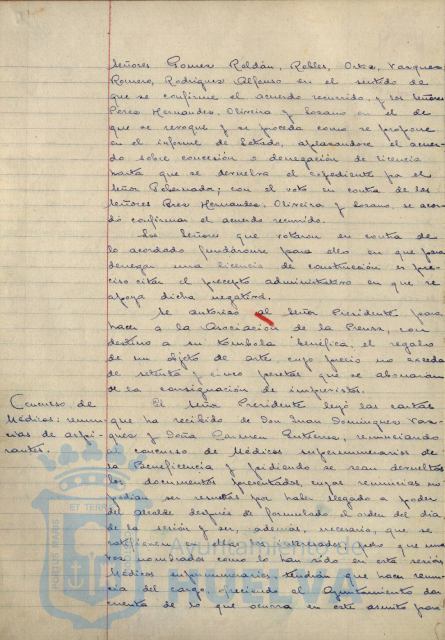 Señores Gomez Roldán, Robles, Ortiz, Vazquez
Romero, Rodriguez Alfonso en el sentido de
que se confirme el acuerdo recurrido, y los Señores
Pérez Hernandez, Oliveira y Lozano en el de
que se revoque y se proceda como se propone
en el informe de Letrado, aplazandose el acuer-
do sobre concesión o denegación de licencia
hasta que se devuelva el expediente por el
Señor Gobernador; con el voto en contra de los
Señores Perez Hernandez, Oliveira y Lozano, se acor-
dó confirmar el acuerdo recurrido.
Los Señores que votaron en contra de
lo acordado fundáronse para ello en que para
denegar una licencia de construcción es pre-
ciso citar el precepto administrativo en que se
apoya dicha negativa.
Se autorizó al Señor Presidente para
hacer a la Asociación de la Prensa, con
destino a su tombola benéfica, el regalo
de un objeto de arte cuyo precio no exceda
de setenta y cinco pesetas que se abonarán
de la consignación de imprevistos.
Concurso de
Médicos: renun-
cias de aspi-
rantes.
El Señor Presidente leyó las cartas
que ha recibido de Don Juan Dominguez Vaz-
quez y Doña Carmen Gutierrez, renunciando
al concurso de Médicos supernumerarios de
la Beneficencia y pidiendo se sean devueltos
los documentos presentados, cuyas renuncias no
podian ser resueltas por haber llegado a poder
del alcalde después de formulado el orden del dia,
de la sesión y ser, además, necesario, que se
ratifiquen en ellas los interesados, puesto que una
vez nombrados como lo han sido en esta sesión
Médicos supernumerarios, tendrán que hacer renun-
cia del cargo, ofreciendo al Ayuntamiento dar
cuenta de lo que ocurra en este asunto para
PORTUS MARIS
ET TERRAE
Ayuntamiento de
HUELVA